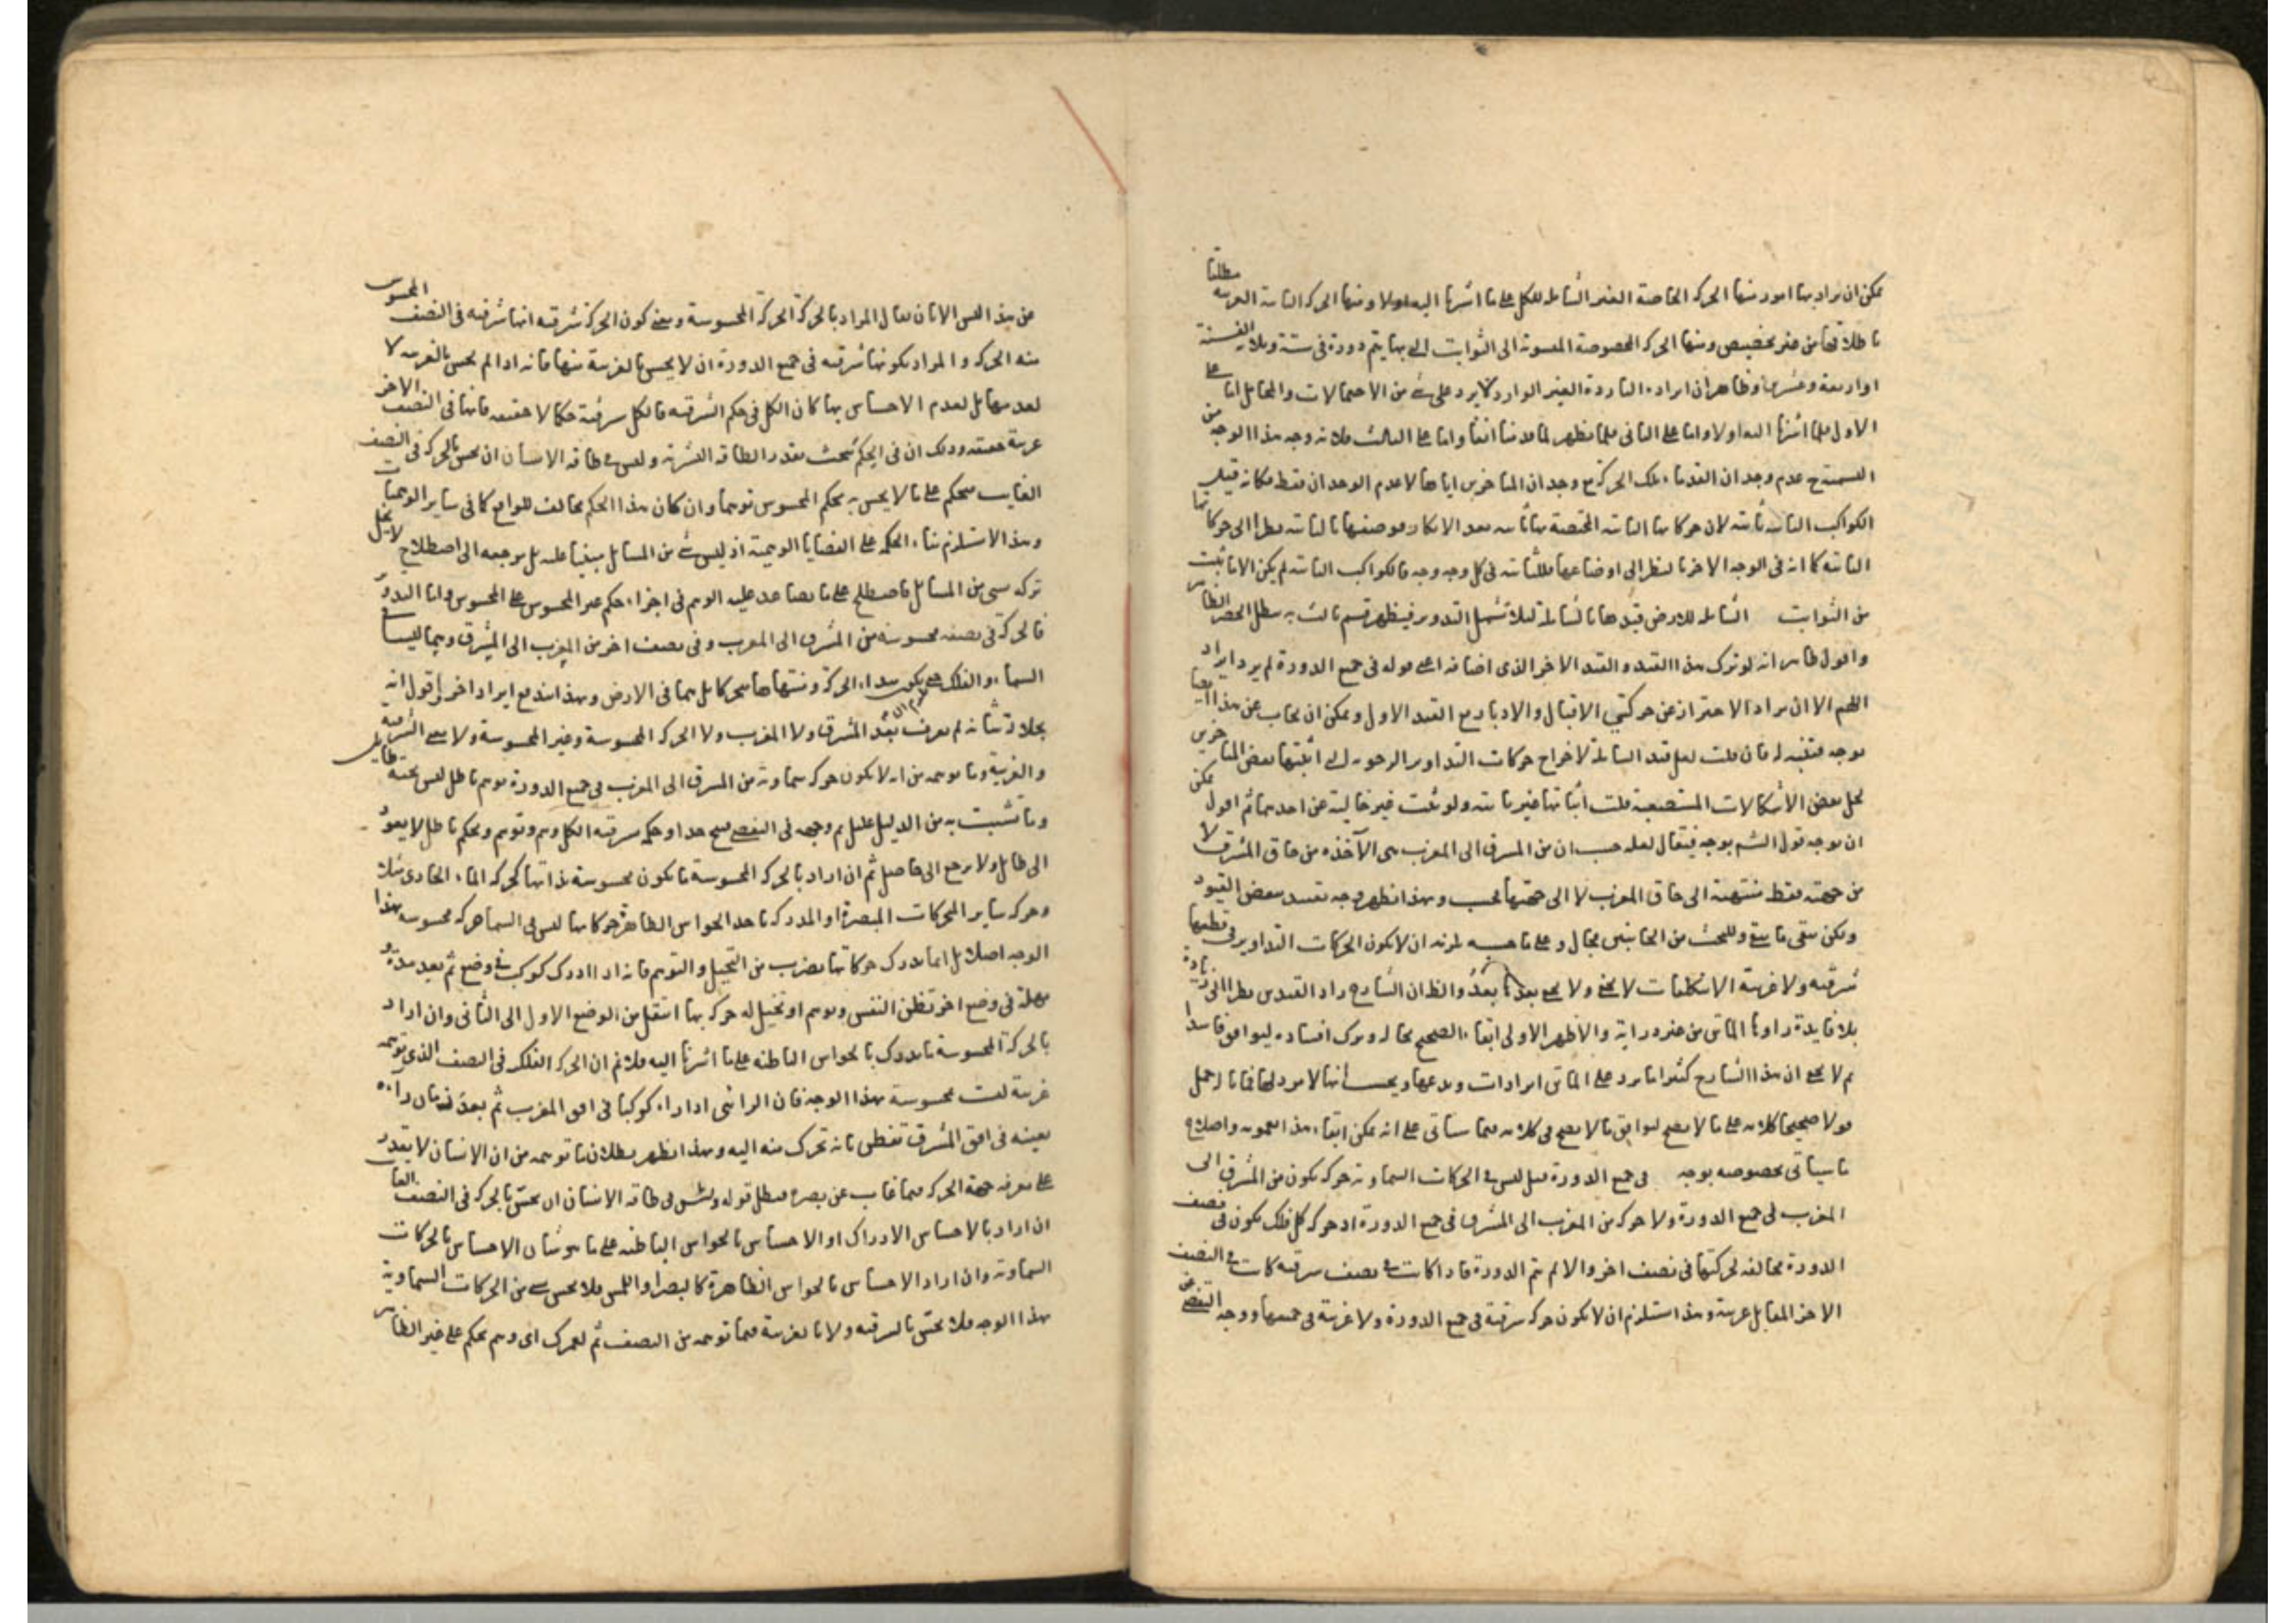 يمكن ان يراد بها امور منها الحركة الخاصة الغير الشاملة للكل على ما اشرنا اليه اولا ومنها الحركة الثانية الغربية مطلقا
باطلاقها من غير تخصيص ومنها الحركة المخصوصة المنسوبة الى الثوابت التي بها يتم دورة في ستة وثلاثين الف سنة
او اربعة وعشرين وظاهر ان ايراده الباردة الغير الوارد لا يرد على شيء من الاحتمالات والمحامل اما على
الاول فلما اشرنا اليه اولا واما على الثاني فلما يظهر لما قدمنا انفا واما على الثالث فلانه وجه هذا الوجه من
التسمية عدم وجدان القدماء تلك الحركة مع وجدان المتاخرين اياها لا عدم الوجدان فقط فكانه قيل
الكواكب الثابتة ثابتة لان حركاتها الثانية المختصة بها ثابتة بعد الانكار فوصفها بالثابتة نظرا الى حركاتها
الثانية كما انه في الوجه الاخر بالنظر الى اوضاعها فللثابتة في كل وجه وجه فالكواكب الثابتة لم يكن الا ما ثبت
من الثوابت الشاملة للارض قيدها بالشاملة لئلا تشمل التدوير فيظهر قسم ثالث به يبطل الحصر الظاهر
واقول ظاهر انه لو ترك هذا القيد والقيد الاخر الذي اضافه اعني قوله في جميع الدورة لم يرد ايراد
اللهم الا ان يراد الاحتراز عن حركتي الاقبال والادبار مع القيد الاول ويمكن ان يجاب عن هذا ايضا
بوجه فتنبه له فان قلت لعل قيد الشاملة لاخراج حركات التداوير التي اثبتها بعض المتاخرين
لحل بعض الاشكالات المستصعبة قلت اثباتها غير ثابتة ولو ثبت غير خالية عن احدهما ثم اقول يمكن
ان يوجه قول الشم بوجه فيقال لعله حسب ان من المشرق الى المغرب هي الآخذه من حاق المشرق لا
من جهته فقط منتهية الى حاق المغرب لا الى جهتها فحسب وبهذا يظهر وجه تقييد ببعض القيود
ولكن بقي ما بقي وللبحث من الجانبين مجال وعلى ما حسبه لزمه ان لا يكون الحركات التداوير في قطبها
شرقية ولا غربية الا بتكلفات لا يخفى ولا يصح بعد بعد والظ ان الشارح زاد القيدين نظرا الى زيادة
بلا فايدة زادها الماتن من غير دراية والاظهر الاولى ابقاء الصحيح بحاله وترك افساده ليوافق فاسدا
ثم لا يخفى ان هذا الشارح كثيرا ما يرد على الماتن ايرادات ويدعها ويحسب انها لا مرد لها فما باله حمل
قولا صحيحا كلامه على ما لا يصح ليوافق ما لا يصح في كلامه فيما سياتي على انه يمكن ابقاء هذا بعمومه واصلاح
ما سياتي بخصوصه بوجه في جميع الدورة قيل ليس في الحركات السماوية حركة يكون من المشرق الى
المغرب في جميع الدورة ولا حركة من المغرب الى المشرق في جميع الدورة اذ حركة كل فلك يكون في نصف
الدورة مخالفه لحركتها في نصف اخر والا لم يتم الدورة فاذا كانت في نصف شرقية كانت في النصف
الاخر المقابل غربية وهذا استلزم ان لا يكون حركة شرقية في جميع الدورة ولا غربية في جميعها ووجه التفصي عن
عن هذا ليس الا بان يقال المراد بالحركة الحركة المحسوسة ومعنى كون الحركة شرقية انها شرقية في النصف المحسوس
منه الحركة والمراد بكونها شرقية في جميع الدورة ان لا يحس بالغربية منها فانه اذا لم يحس بالغربية لا
لعدمها بل لعدم الاحساس بها كان الكل في حكم الشرقية فالكل شرقية حكما لا حقيقة فانها في النصف الاخر
غربية حقيقة وذلك ان في الحكم بحث بقدر الطاقة البشرية وليس في طاقة الانسان ان يحس بالحركة في النصف
الغايب فيحكم على ما لا يحس به بحكم المحسوس توهما وان كان هذا الحكم مخالف للواقع كما في ساير الوهميات
وهذا لا يستلزم بناء الحكمة على القضايا الوهمية اذ ليس شيء من المسائل مبنيا عليه بل مرجعه الى اصطلاح لا يخل
تركه بشيء من المسائل فاصطلح على ما يصاعد عليه الوهم في اجراء حكم غير المحسوس على المحسوس واما التدوير
فالحركة في نصفه محسوسة من المشرق الى المغرب وفي نصف اخر من المغرب الى المشرق وهما ليسا مع
السماء والفلك الحركة ومنتهاها فيما في الارض وبهذا اندفع ايراد اخر اقول انه
بجلالة شانه لم يعرف بعد المشرق ولا المغرب ولا الحركة المحسوسة وغير المحسوسة ولا معنى الشرقية
والغربية وما توهمه من انه لا يكون حركة سماوية من المشرق الى المغرب في جميع الدورة توهم باطل ليس تحته طايل
وما تشبث به من الدليل عليل ثم وجهه في التفصي قبيح جدا وحكمه بشرقية الكل وهم وتوهم وتحكم باطل لا يعود
الى طايل ولا يرجع الى حاصل ثم ان اراد بالحركة المحسوسة ما يكون محسوسة بذاتها كحركة الماء الجاري مثلا
وحركة ساير المحركات المبصرة او المدركة باحد الحواس الظاهرة حركاتها ليس في السماء حركة محسوسة بهذا
الوجه اصلا بل انما يدرك حركاتها بضرب من التخيل والتوهم فانه اذا ادرك كوكب في وضع ثم بعد مدة و
مهلة في وضع اخر تظن النفس وتوهم او تخيل له حركة بها انتقل من الوضع الاول الى الثاني وان اراد
بالحركة المحسوسة ما يدرك بالحواس الباطنة على ما اشرنا اليه فلا نم ان الحركة الفلك في النصف الذي توهمه
غربية ليست محسوسة بهذا الوجه فان الرائي اذا راه كوكبا في افق المغرب ثم بعد زمان راه
بعينه في افق المشرق تفطن بانه تحرك منه اليه وبهذا يظهر بطلان ما توهمه من ان الانسان لا يقدر
على معرفة جهة الحركة فيما غاب عن بصره فبطل قوله وليس في طاقة الانسان ان يحس بالحركة في النصف الغايب
ان اراد بالاحساس الادراك او الاحساس بالحواس الباطنة على ما هو شان الاحساس بالحركات
السماوية وان اراد الاحساس بالحواس الظاهرة كالبصر او اللمس فلا يحس شيء من الحركات السماوية
بهذا الوجه فلا يحس بالشرقية ولا بالغربية فيما توهمه من النصف ثم لعمرك اي وهم يحكم على غير الظاهر